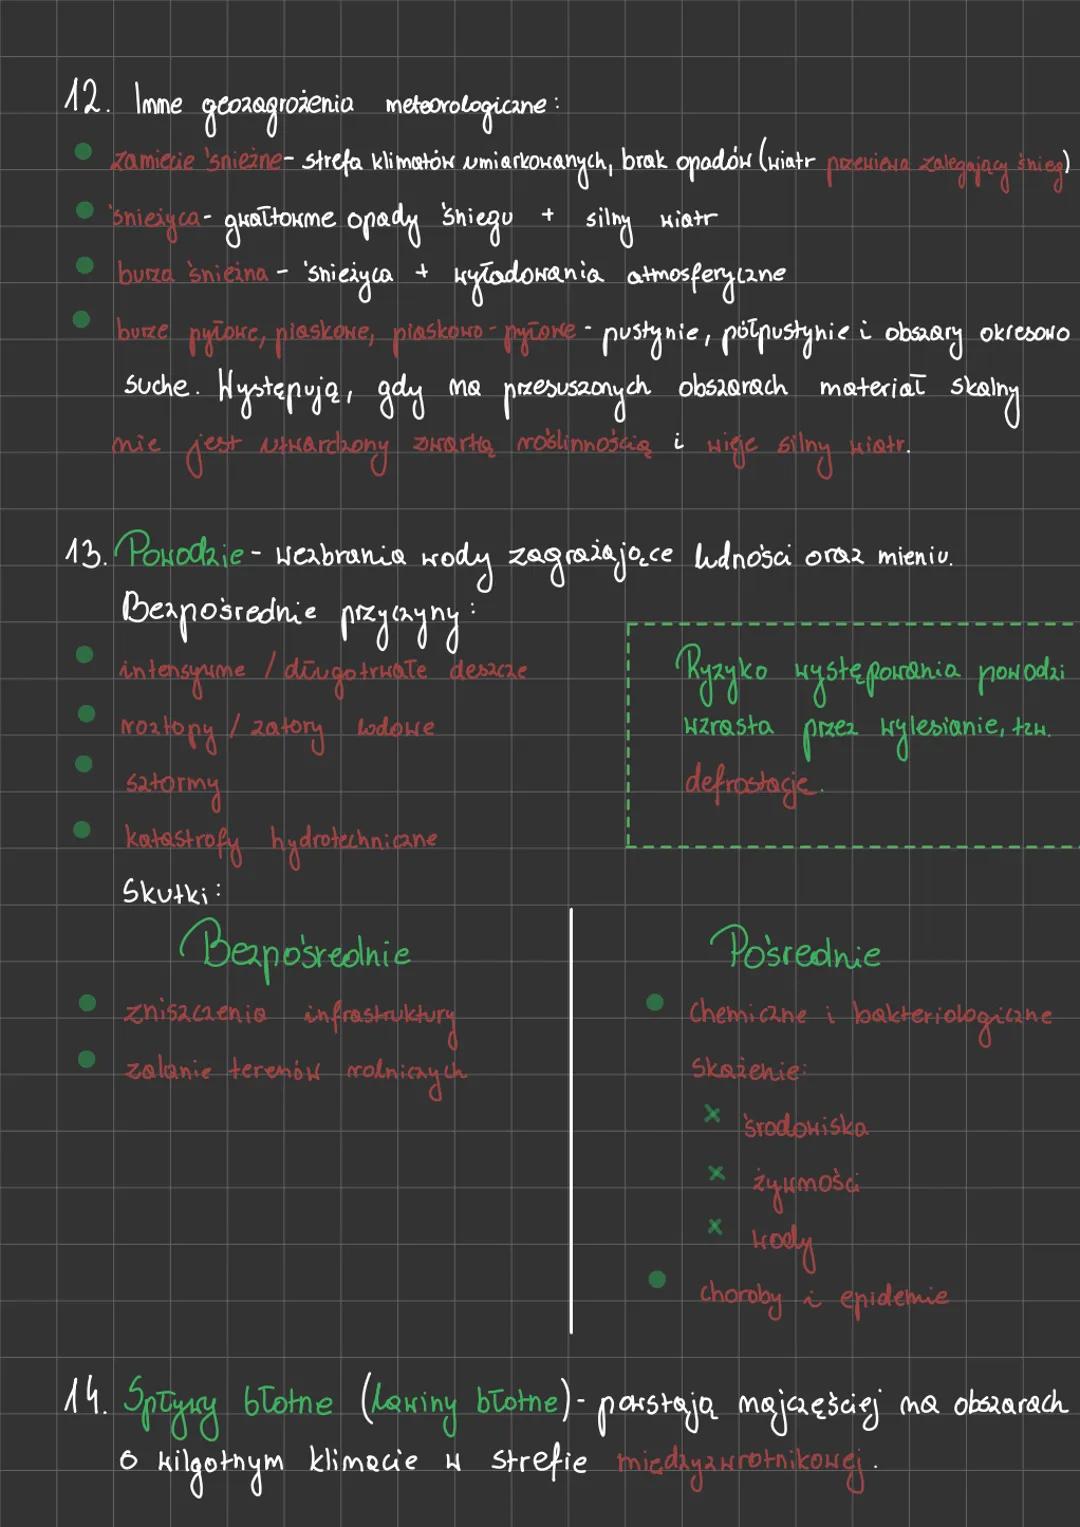 12. Inne geozagrożenia meteorologiczne:
zamiecie śnieżne - strefa klimatów umiarkowanych, brak opadów (wiatr przewiewa zalegający śnieg)
śnieżyca - gwałtowne opady śniegu + silny wiatr
burza śnieżna - śnieżyca + wyładowania atmosferyczne
burze pyłowe, piaskowe, piaskowo-pyłowe - pustynie, półpustynie i obszary okresowo
suche. Występują, gdy na przesuszonych obszarach materiał skalny
nie jest utwardzony zwartą roślinnością i wieje silny wiatr.
13. Powodzie - wezbrania wody zagrażające ludności oraz mieniu.
Bezpośrednie przyczyny:
intensywne / długotrwałe deszcze
roztopy / zatory lodowe
sztormy
katastrofy hydrotechniczne
Ryzyko występowania powodzi
wzrasta przez wylesianie, tzw.
defrostację.
Skutki:
Bezpośrednie
zniszczenia infrastruktury
zalanie terenów rolniczych
Pośrednie
chemiczne i bakteriologiczne
skażenie:
x środowiska
x żywności
x wody
choroby i epidemie
14. Spływy błotne (lawiny błotne) - powstają najczęściej na obszarach
o wilgotnym klimacie w strefie międzyzwrotnikowej.